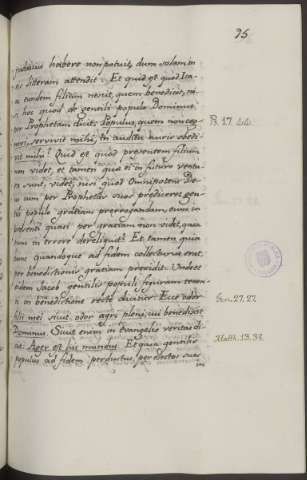 95
habere non potuit, dum solam in
litteram attendit: Et quid est quod Isa-
ac eundem filium nescit, quem benedicit, ni-
si hoc quod de gentili populo Dominus
per Prophetam dicit: Populus, quem non cog-
novi, servivit mihi, in auditu auris obedi-
vit mihi? Quid est quod presentem filium
non videt, et tamen quae ei in futuro ventu-
ra sunt, videt; nisi quod Omnipotens De-
us cum per Prophetas suos prediceret gen-
tili populo gratiam prerrogandam, eum in
presenti quasi per gratiam non videt, quia
tunc in errore dereliquit? Et tamen quia
eum quandoque ad fidem collecturus erat,
per benedictionis gratiam previdit. Unde et
eidem Jacob gentilis populi figuram tenen-
ti in benedictione recte dicitur: Ecce odor
filii mei sicut odor agri pleni, cui benedixit
Dominus. Sicut enim in Evangelio veritas di-
cit: Ager est hic mundus. Et quia gentilis
populus ad fidem perductus, per electos suos
Ps. 17.
Gen. 27, 27.
Matth. 13, 38.